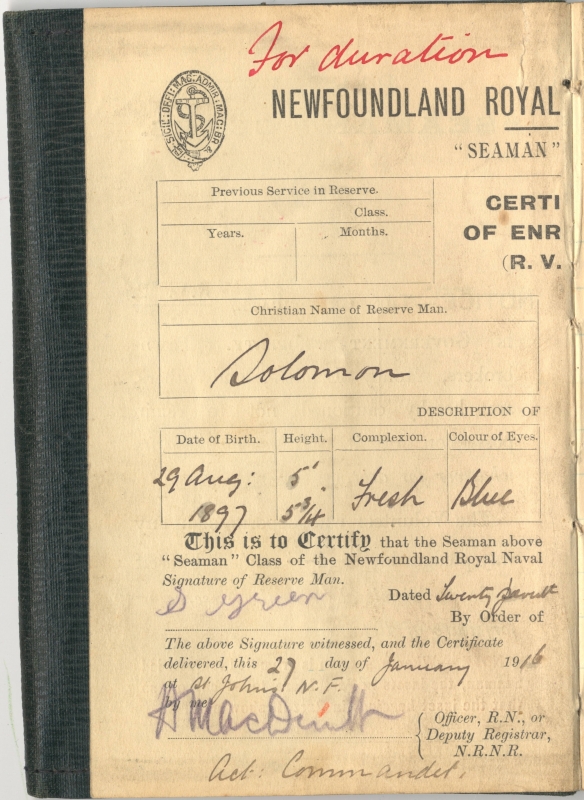 For duration
NEWFOUNDLAND ROYAL
"SEAMAN"
Previous Service in Reserve.
Class.
Years. Months.
CERTI
OF ENR
(R. V.
Christian Name of Reserve Man.
Solomon
DESCRIPTION OF
Date of Birth. Height. Complexion. Colour of Eyes.
29 Aug: 5' Fresh Blue
1897 5 3/4
This is to Certify that the Seaman above
"Seaman" Class of the Newfoundland Royal Naval
Signature of Reserve Man.
S Green
Dated Twenty
By Order of
The above Signature witnessed, and the Certificate
delivered, this 27 day of January 1916
at St John's N.F.
by me
Officer, R.N., or
Deputy Registrar,
N.R.N.R.
Act: Commander.